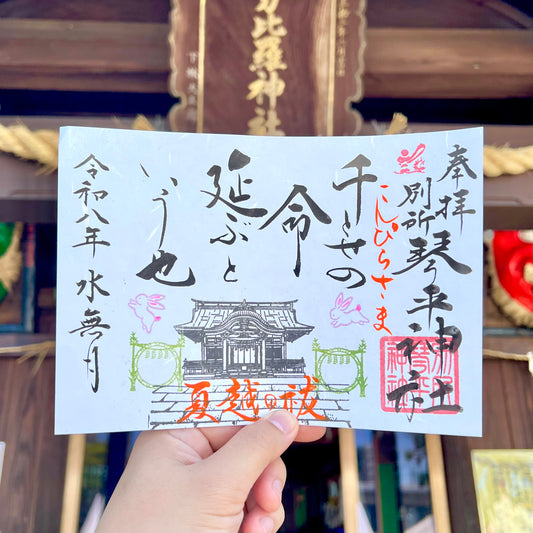 比羅神社
奉拝
別所琴平神社
こんぴらさま
千とせの
命
延ぶと
いう也
令和八年 水無月
夏越の祓